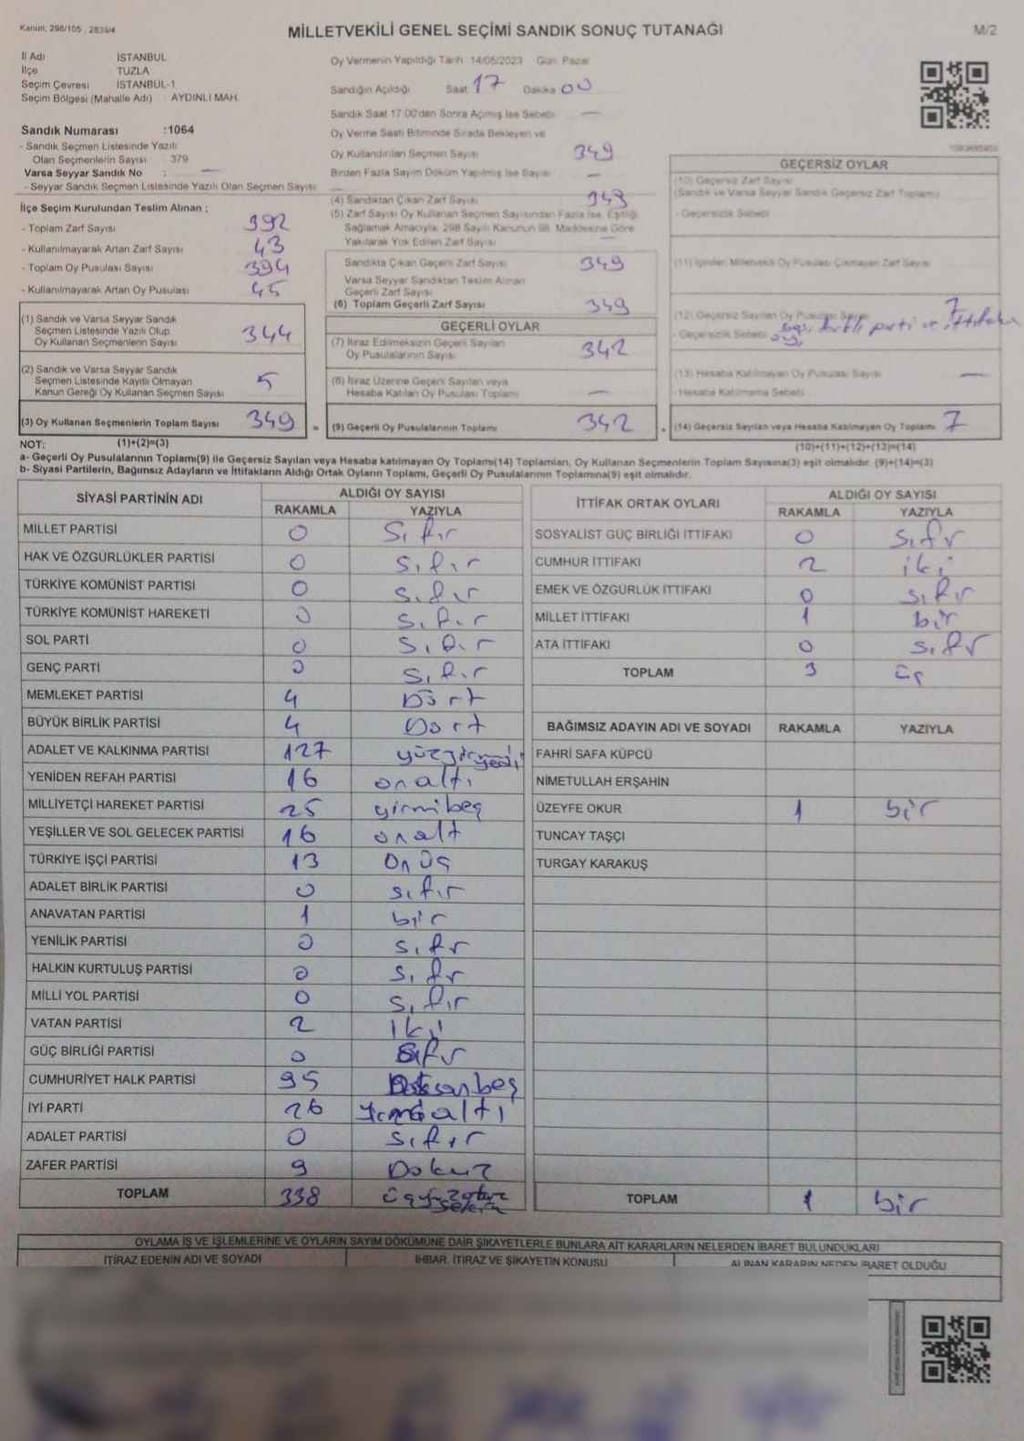 Kanun: 298/105, 2839/4
MİLLETVEKİLİ GENEL SEÇİMİ SANDIK SONUÇ TUTANAĞI
M/2
İl Adı İSTANBUL
İlçe TUZLA
Seçim Çevresi İSTANBUL-1
Seçim Bölgesi (Mahalle Adı) AYDINLI MAH.
Oy Vermenin Yapıldığı Tarih 14/05/2023 Gün Pazar
Sandığın Açıldığı Saat 17 Dakika 00
Sandık Saat 17:00'den Sonra Açılmış İse Sebebi —
Sandık Numarası :1064
- Sandık Seçmen Listesinde Yazılı
Olan Seçmenlerin Sayısı 379
Varsa Seyyar Sandık No : —
- Seyyar Sandık Seçmen Listesinde Yazılı Olan Seçmen Sayısı
Oy Verme Saati Bitiminde Sırada Bekleyen ve
Oy Kullandırılan Seçmen Sayısı 349
Birden Fazla Sayım Döküm Yapılmış İse Sayısı —
İlçe Seçim Kurulundan Teslim Alınan ;
- Toplam Zarf Sayısı 392
- Kullanılmayarak Artan Zarf Sayısı 43
- Toplam Oy Pusulası Sayısı 394
- Kullanılmayarak Artan Oy Pusulası 45
(1) Sandık ve Varsa Seyyar Sandık
Seçmen Listesinde Yazılı Olup
Oy Kullanan Seçmenlerin Sayısı 344
(2) Sandık ve Varsa Seyyar Sandık
Seçmen Listesinde Kayıtlı Olmayan
Kanun Gereği Oy Kullanan Seçmen Sayısı 5
(3) Oy Kullanan Seçmenlerin Toplam Sayısı 349
(4) Sandıktan Çıkan Zarf Sayısı 349
(5) Zarf Sayısı Oy Kullanan Seçmen Sayısından Fazla İse, Eşitliği
Sağlamak Amacıyla, 298 Sayılı Kanunun 98. Maddesine Göre
Yakılarak Yok Edilen Zarf Sayısı —
Sandıkta Çıkan Geçerli Zarf Sayısı 349
Varsa Seyyar Sandıktan Teslim Alınan
Geçerli Zarf Sayısı —
(6) Toplam Geçerli Zarf Sayısı 349
GEÇERLİ OYLAR
(7) İtiraz Edilmeksizin Geçerli Sayılan
Oy Pusulalarının Sayısı 342
(8) İtiraz Üzerine Geçerli Sayılan veya
Hesaba Katılan Oy Pusulası Toplamı —
(9) Geçerli Oy Pusulalarının Toplamı 342
GEÇERSİZ OYLAR
(10) Geçersiz Zarf Sayısı
(Sandık ve Varsa Seyyar Sandık Geçersiz Zarf Toplamı)
- Geçersizlik Sebebi
(11) İçinden Milletvekili Oy Pusulası Çıkmayan Zarf Sayısı
(12) Geçersiz Sayılan Oy Pusulası Sayısı 7
- Geçersizlik Sebebi parti ve ittifaka
(13) Hesaba Katılmayan Oy Pusulası Sayısı —
- Hesaba Katılmama Sebebi
(14) Geçersiz Sayılan veya Hesaba Katılmayan Oy Toplamı 7
NOT: (1)+(2)=(3) (10)+(11)+(12)+(13)=(14)
a- Geçerli Oy Pusulalarının Toplamı(9) ile Geçersiz Sayılan veya Hesaba katılmayan Oy Toplamı(14) Toplamları, Oy Kullanan Seçmenlerin Toplam Sayısına(3) eşit olmalıdır. (9)+(14)=(3)
b- Siyasi Partilerin, Bağımsız Adayların ve İttifakların Aldığı Ortak Oyların Toplamı, Geçerli Oy Pusulalarının Toplamına(9) eşit olmalıdır.
SİYASİ PARTİNİN ADI ALDIĞI OY SAYISI
RAKAMLA YAZIYLA
MİLLET PARTİSİ 0 Sıfır
HAK VE ÖZGÜRLÜKLER PARTİSİ 0 Sıfır
TÜRKİYE KOMÜNİST PARTİSİ 0 Sıfır
TÜRKİYE KOMÜNİST HAREKETİ 0 Sıfır
SOL PARTİ 0 Sıfır
GENÇ PARTİ 0 Sıfır
MEMLEKET PARTİSİ 4 Dört
BÜYÜK BİRLİK PARTİSİ 4 Dört
ADALET VE KALKINMA PARTİSİ 127 yüzyirmiyedi
YENİDEN REFAH PARTİSİ 16 onaltı
MİLLİYETÇİ HAREKET PARTİSİ 25 yirmibeş
YEŞİLLER VE SOL GELECEK PARTİSİ 16 onaltı
TÜRKİYE İŞÇİ PARTİSİ 13 Onüç
ADALET BİRLİK PARTİSİ 0 sıfır
ANAVATAN PARTİSİ 1 bir
YENİLİK PARTİSİ 0 sıfır
HALKIN KURTULUŞ PARTİSİ 0 sıfır
MİLLİ YOL PARTİSİ 0 sıfır
VATAN PARTİSİ 2 iki
GÜÇ BİRLİĞİ PARTİSİ 0 Sıfır
CUMHURİYET HALK PARTİSİ 95 Doksanbeş
İYİ PARTİ 26 Yirmialtı
ADALET PARTİSİ 0 sıfır
ZAFER PARTİSİ 9 Dokuz
TOPLAM 338 üçyüzotuzsekiz
İTTİFAK ORTAK OYLARI ALDIĞI OY SAYISI
RAKAMLA YAZIYLA
SOSYALİST GÜÇ BİRLİĞİ İTTİFAKI 0 sıfır
CUMHUR İTTİFAKI 2 iki
EMEK VE ÖZGÜRLÜK İTTİFAKI 0 sıfır
MİLLET İTTİFAKI 1 bir
ATA İTTİFAKI 0 sıfır
TOPLAM 3 üç
BAĞIMSIZ ADAYIN ADI VE SOYADI RAKAMLA YAZIYLA
FAHRİ SAFA KÜPCÜ
NİMETULLAH ERŞAHİN
ÜZEYFE OKUR 1 bir
TUNCAY TAŞÇI
TURGAY KARAKUŞ
TOPLAM 1 bir
OYLAMA İŞ VE İŞLEMLERİNE VE OYLARIN SAYIM DÖKÜMÜNE DAİR ŞİKAYETLERLE BUNLARA AİT KARARLARIN NELERDEN İBARET BULUNDUKLARI
İTİRAZ EDENİN ADI VE SOYADI İHBAR, İTİRAZ VE ŞİKAYETİN KONUSU ALINAN KARARIN NEDEN İBARET OLDUĞU